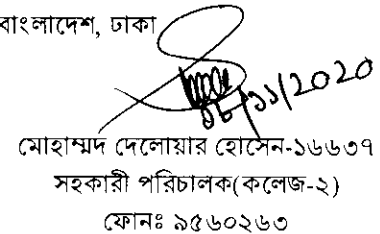 বাংলাদেশ, ঢাকা
১৮/১১/2020
মোহাম্মদ দেলোয়ার হোসেন-১৬৬৩৭
সহকারী পরিচালক(কলেজ-২)
ফোনঃ ৯৫৬০২৬৩